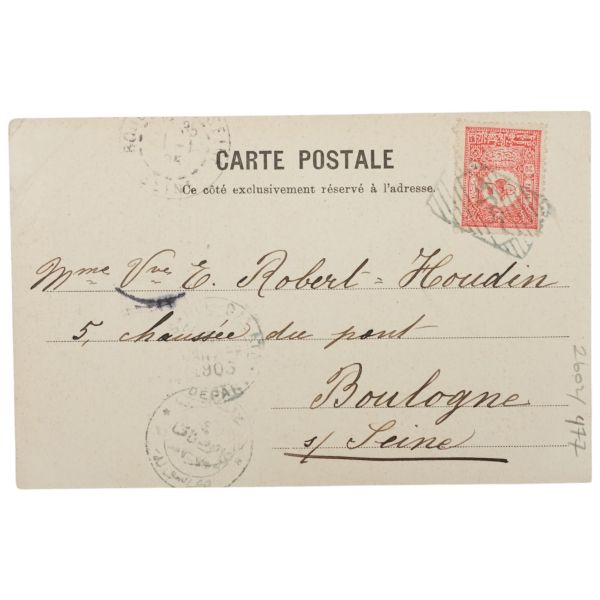 CARTE POSTALE
Ce côté exclusivement réservé à l'adresse.
Mme Vve E. Robert=Houdin
5, chaussée du pont
Boulogne
s/ Seine
1903
DEPART
2604/477